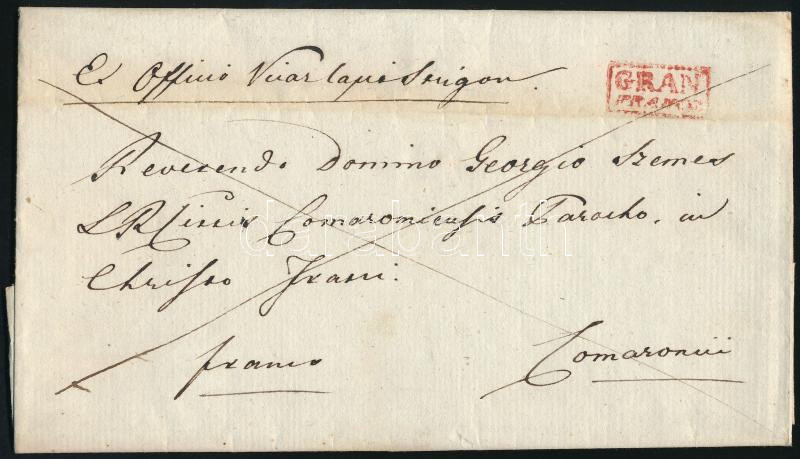 Ex Officio Vicar Capit Strigon.
GRAN
FRANCO
Reverendo Domino Georgio Szemes
L R Cittis Comaromiensis Parocho, in
Christo Fratri.
franco
Comaromii
darabanth